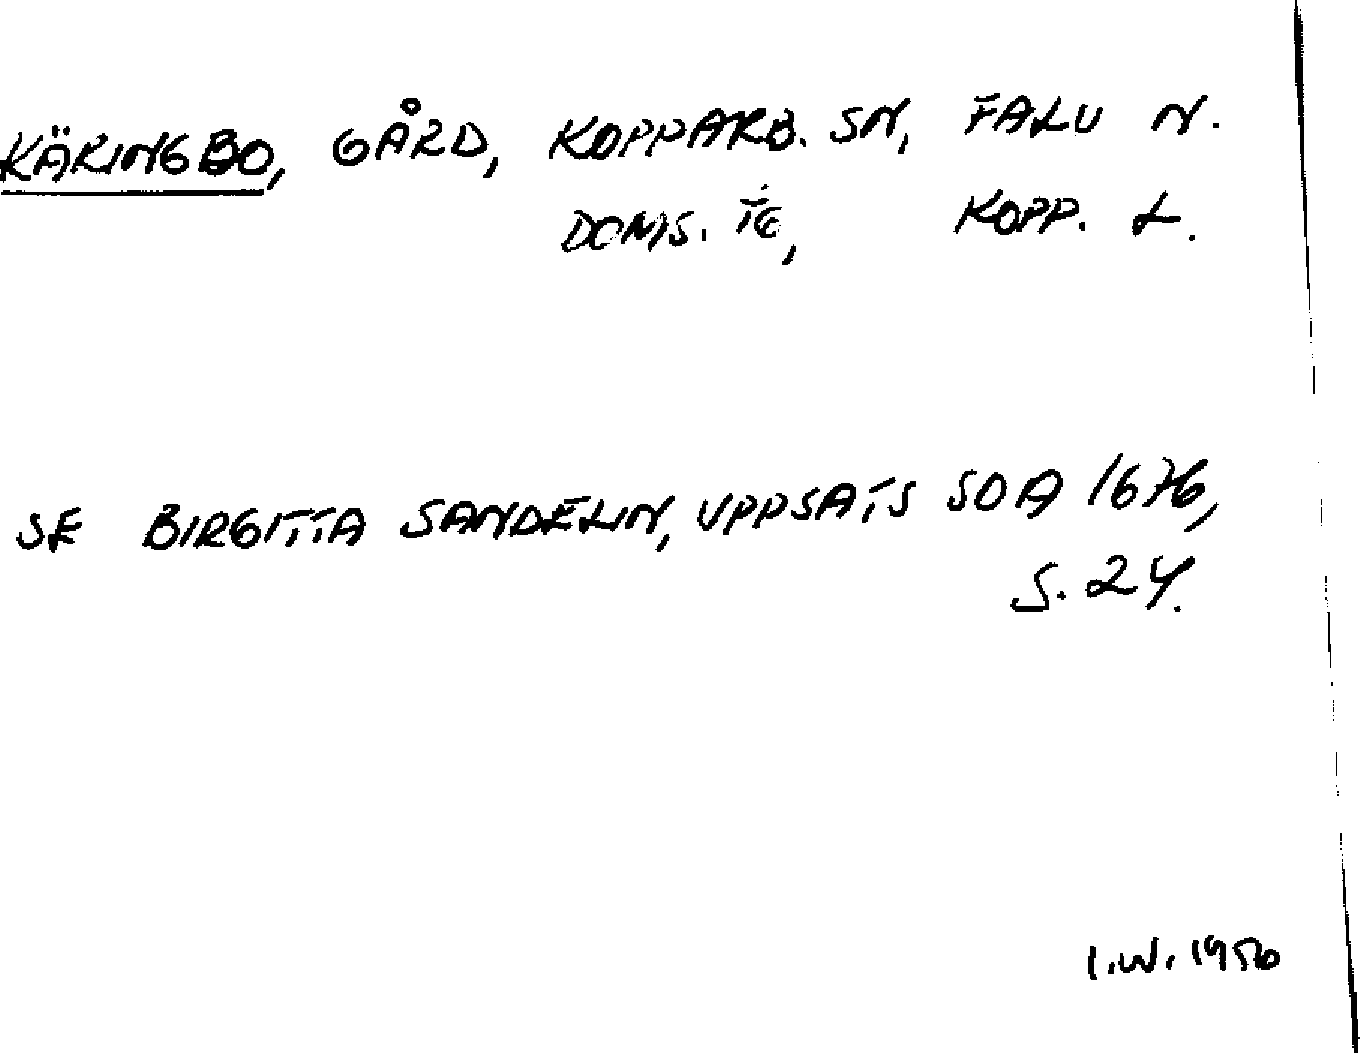 KÄRINGBO, GÅRD, KOPPARB. SN, FALU N.
DOMS. TG, KOPP. L.
SE BIRGITTA SANDELIN, UPPSATS SOA 1676,
S. 24.
I.W. 1956